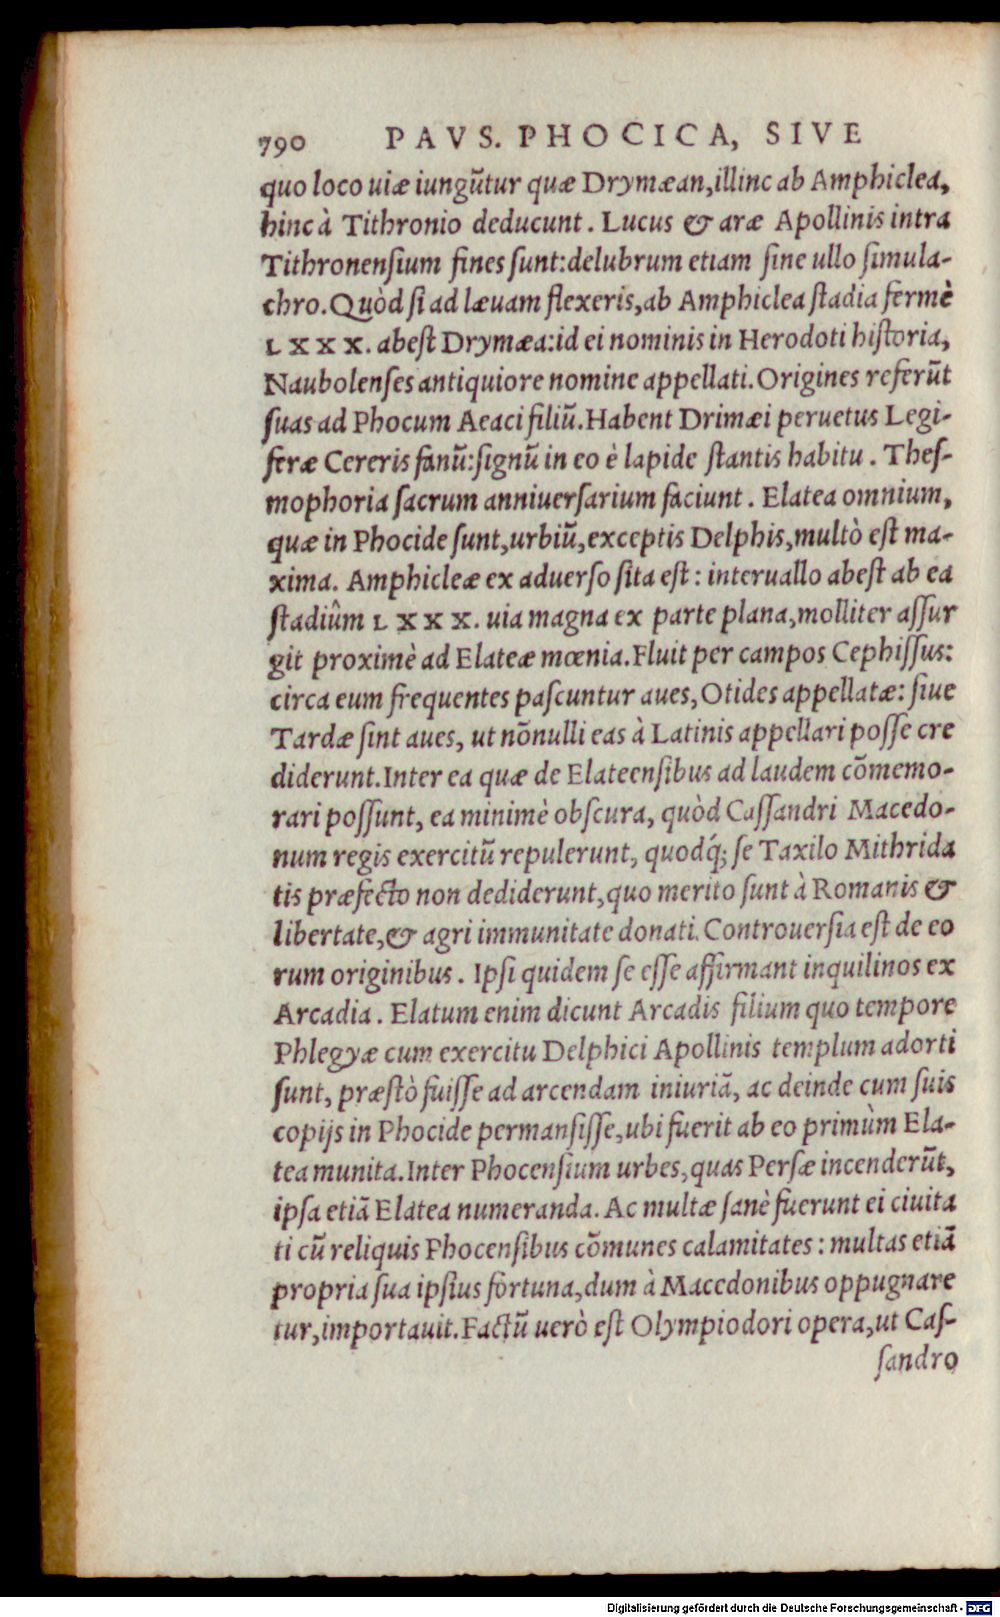 790 PAVS. PHOCICA, SIVE
quo loco uiæ iungũtur quæ Drymæan, illinc ab Amphiclea,
hinc à Tithronio deducunt. Lucus & aræ Apollinis intra
Tithronenſium fines ſunt: delubrum etiam ſine ullo ſimula-
chro. Quòd ſi ad læuam flexeris, ab Amphiclea ſtadia fermè
LXXX. abeſt Drymæa: id ei nominis in Herodoti hiſtoria,
Naubolenſes antiquiore nomine appellati. Origines referũt
ſuas ad Phocum Aeaci filiũ. Habent Drimæi peruetus Legi-
feræ Cereris fanũ: ſignũ in eo è lapide ſtantis habitu. Theſ-
mophoria ſacrum anniuerſarium faciunt. Elatea omnium,
quæ in Phocide ſunt, urbiũ, exceptis Delphis, multò eſt ma-
xima. Amphicleæ ex aduerſo ſita eſt: interuallo abeſt ab ea
ſtadiûm LXXX. uia magna ex parte plana, molliter aſſur
git proximè ad Elateæ mœnia. Fluit per campos Cephiſſus:
circa eum frequentes paſcuntur aues, Otides appellatæ: ſiue
Tardæ ſint aues, ut nõnulli eas à Latinis appellari poſſe cre
diderunt. Inter ea quæ de Elateenſibus ad laudem cõmemo-
rari poſſunt, ea minimè obſcura, quòd Caſſandri Macedo-
num regis exercitũ repulerunt, quodq́; ſe Taxilo Mithrida
tis præfecto non dediderunt, quo merito ſunt à Romanis &
libertate, & agri immunitate donati. Controuerſia eſt de eo
rum originibus. Ipſi quidem ſe eſſe affirmant inquilinos ex
Arcadia. Elatum enim dicunt Arcadis filium quo tempore
Phlegyæ cum exercitu Delphici Apollinis templum adorti
ſunt, præſtò fuiſſe ad arcendam iniuriã, ac deinde cum ſuis
copijs in Phocide permanſiſſe, ubi fuerit ab eo primùm Ela-
tea munita. Inter Phocenſium urbes, quas Perſæ incenderũt,
ipſa etiã Elatea numeranda. Ac multæ ſanè fuerunt ei ciuita
ti cũ reliquis Phocenſibus cõmunes calamitates: multas etiã
propria ſua ipſius fortuna, dum à Macedonibus oppugnare
tur, importauit. Factũ uerò eſt Olympiodori opera, ut Caſ-
ſandro
Digitalisierung gefördert durch die Deutsche Forschungsgemeinschaft - DFG